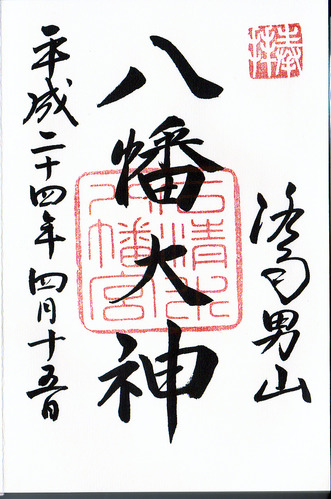 奉拝
洛南男山
八幡大神
石清水八幡宮
平成二十四年四月十五日